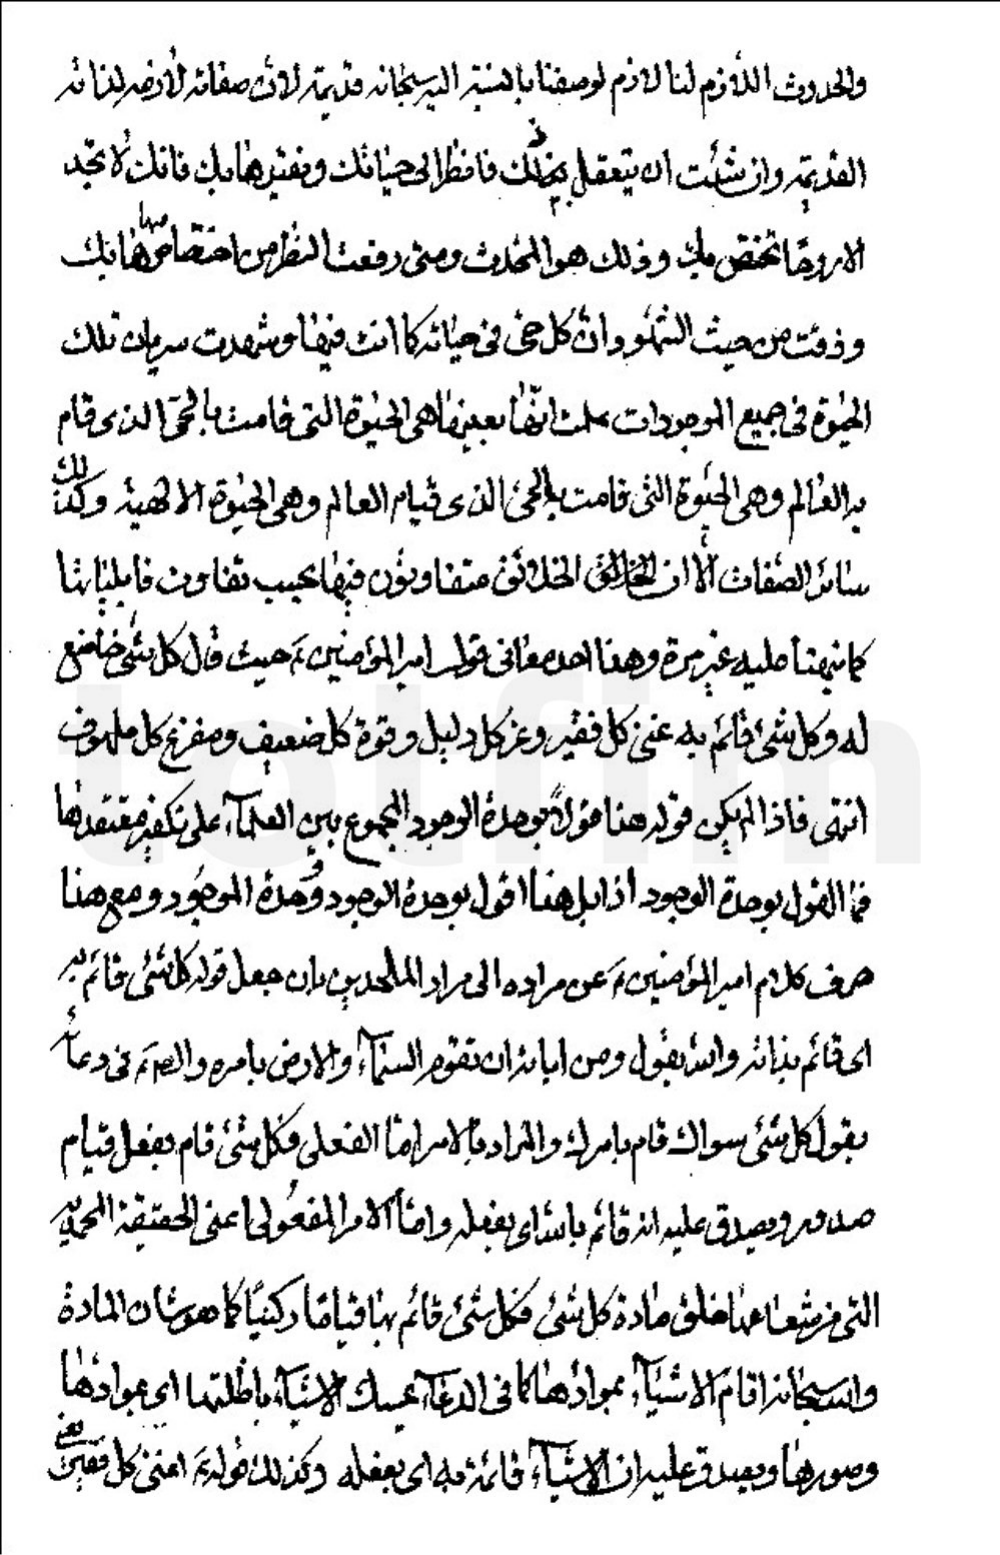 والحدوث اللازم لنا لازم لوصفنا بالنسبة اليه سبحانه قديمة لان صفاته لازمة لذاته
القديمة وان شئت ان يتعقل ذلك فانظر الى حياتك وتقيدها بك فانك لا تجد
الا روحا تختص بك وذلك هو المحدث ومتى رفعت النظر من اختصاصها بك
وذقت من حيث الشهود ان كل حي في حياته كما انت فيها وشهدت سريان تلك
الحيوة في جميع الموجودات علمت انها بعينها هي الحيوة التي قامت بالحي الذي قام
به العالم وهي الحيوة التي قامت بالحي الذي قيام العالم وهي الحيوة الالهية وكذلك
سائر الصفات الا ان الخلائق متفاوتون فيها بحسب تفاوت قابلياتها
كما نبهنا عليه غير مرة وهذا احد معاني قول امير المؤمنين ع حيث قال كل شئ خاضع
له وكل شئ قائم به غنى كل فقير وعز كل ذليل وقوة كل ضعيف ومفزع كل ملهوف
انتهى فاذا لم يكن قوله هنا قولا بوحدة الوجود المجمع بين العلماء على تكفير معتقدها
فما القول بوحدة الوجود اذا بل هذا قول بوحدة الوجود ووحدة الموجود ومع هذا
صرف كلام امير المؤمنين ع عن مراده الى مراد الملحدين بان جعل قوله كل شئ قائم به
اي قائم بذاته والله يقول ومن اياته ان تقوم السماء والارض بامره والصم في دعاء
يقول كل شئ سواك قام بامرك والمراد بالامر اما الفعلي فكل شئ قام بفعله قيام
صدور ويصدق عليه انه قائم بالله اي بفعله واما الامر المفعولي اعني الحقيقة المحمدية
التي من شعاعها خلق مادة كل شئ فكل شئ قائم بها قياما ركنيا كما هو شان المادة
والله سبحانه اقام الاشياء بموادها كما في الدعاء يمسك الاشياء باظلتها اي بموادها
وصورها ويصدق عليه ان الاشياء قائمة به اي بفعله وكذلك قوله ع غنى كل فقير يعني